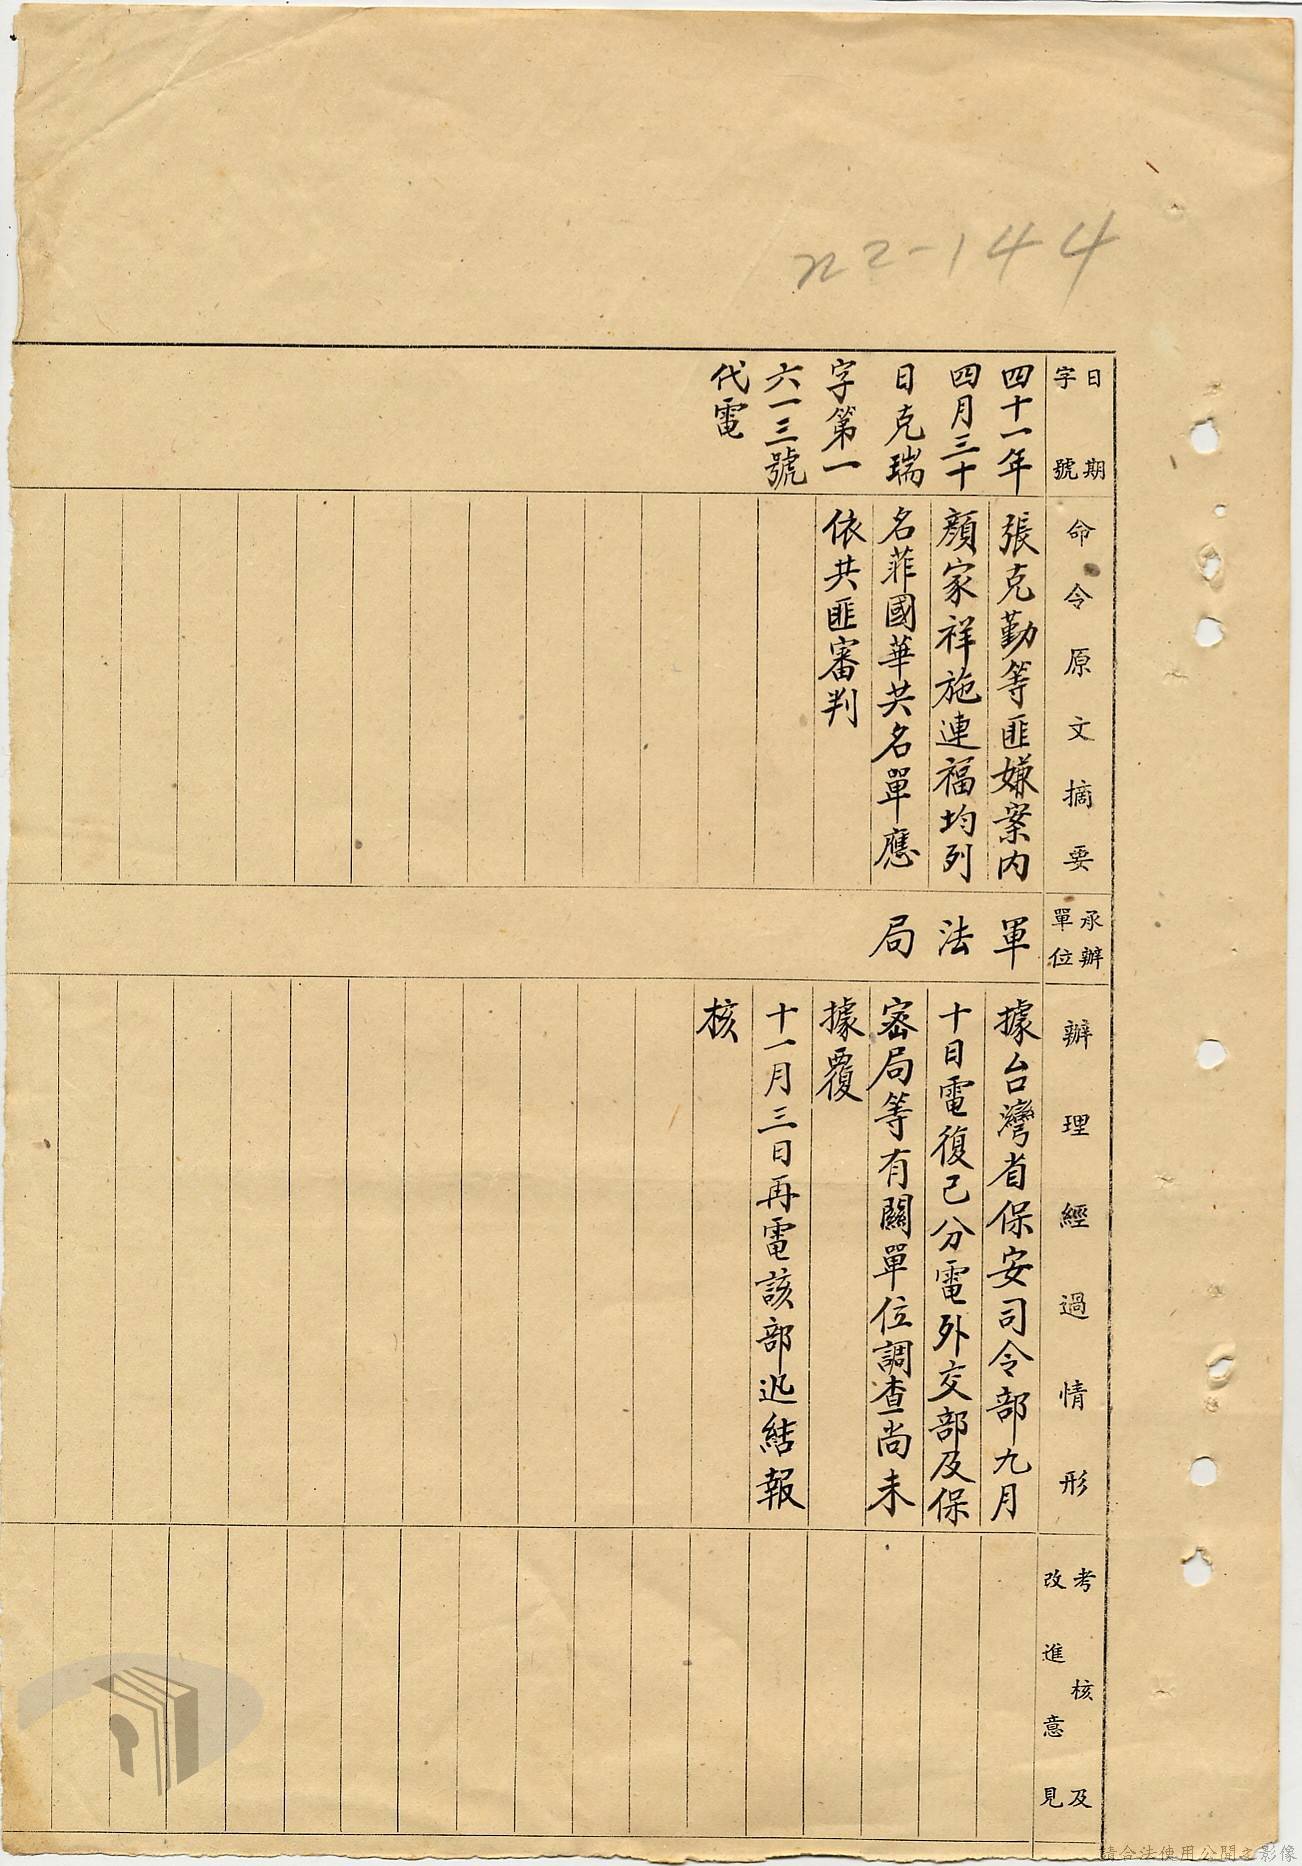 n2-144
日期
字號
四十一年
四月三十
日克瑞
字第一
六一三號
代電
命令原文摘要
張克勤等匪嫌案內
顏家祥施連福均列
名菲國華共名單應
依共匪審判
承辦
單位
軍
法
局
辦理經過情形
據台灣省保安司令部九月
十日電復已分電外交部及保
密局等有關單位調查尚未
據覆
十一月三日再電該部迅結報
核
考核及
改進意見
請合法使用公開之影像